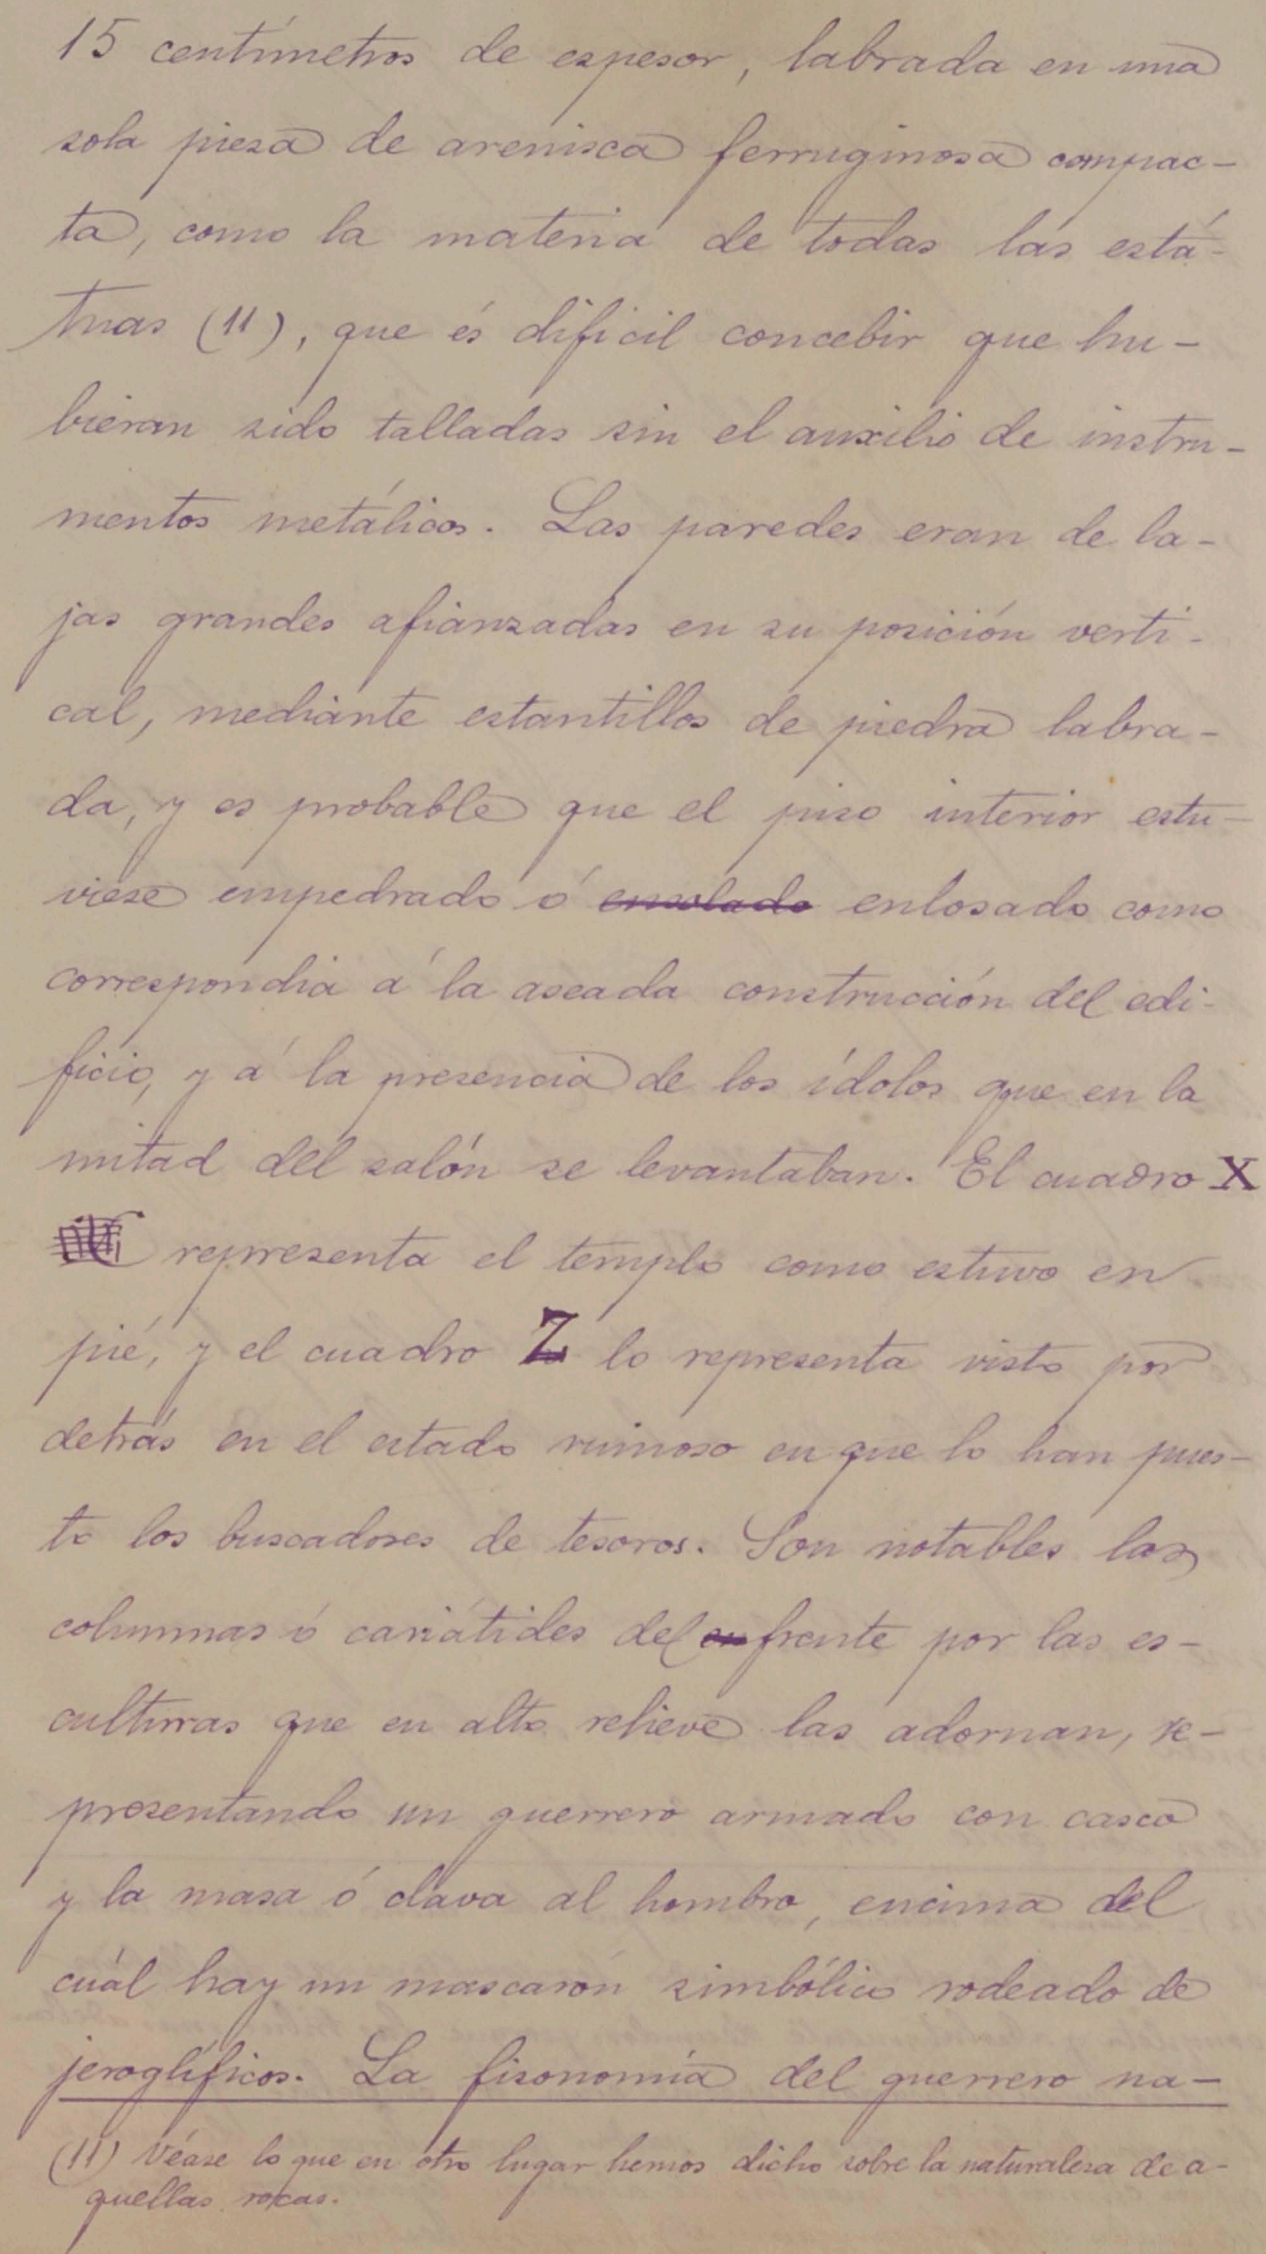 15 centímetros de espesor, labrada en una
sola pieza de arenisca ferruginosa compac-
ta, como la materia de todas las está-
tuas (11), que és dificil concebir que hu-
bieran sido talladas sin el auxilio de instru-
mentos metálicos. Las paredes eran de la-
jas grandes afianzadas en su posición verti-
cal, mediante estantillos de piedra labra-
da, y es probable que el piso interior estu-
viese empedrado ó ensolado enlosado como
correspondia á la aseada construcción del edi-
ficio, y á la presencia de los ídolos que en la
mitad del salón se levantaban. El cuadro X
representa el templo como estuvo en
pié, y el cuadro Z lo representa visto por
detrás en el estado ruinoso en que lo han pues-
to los buscadores de tesoros. Son notables las
columnas ó cariátides del su frente por las es-
culturas que en alto relieve las adornan, re-
presentando un guerrero armado con casco
y la masa ó clava al hombro, encima del
cuál hay un mascarón simbólico rodeado de
jeroglíficos. La fisonomía del guerrero na-
(11) Véase lo que en otro lugar hemos dicho sobre la naturaleza de a-
quellas rocas.